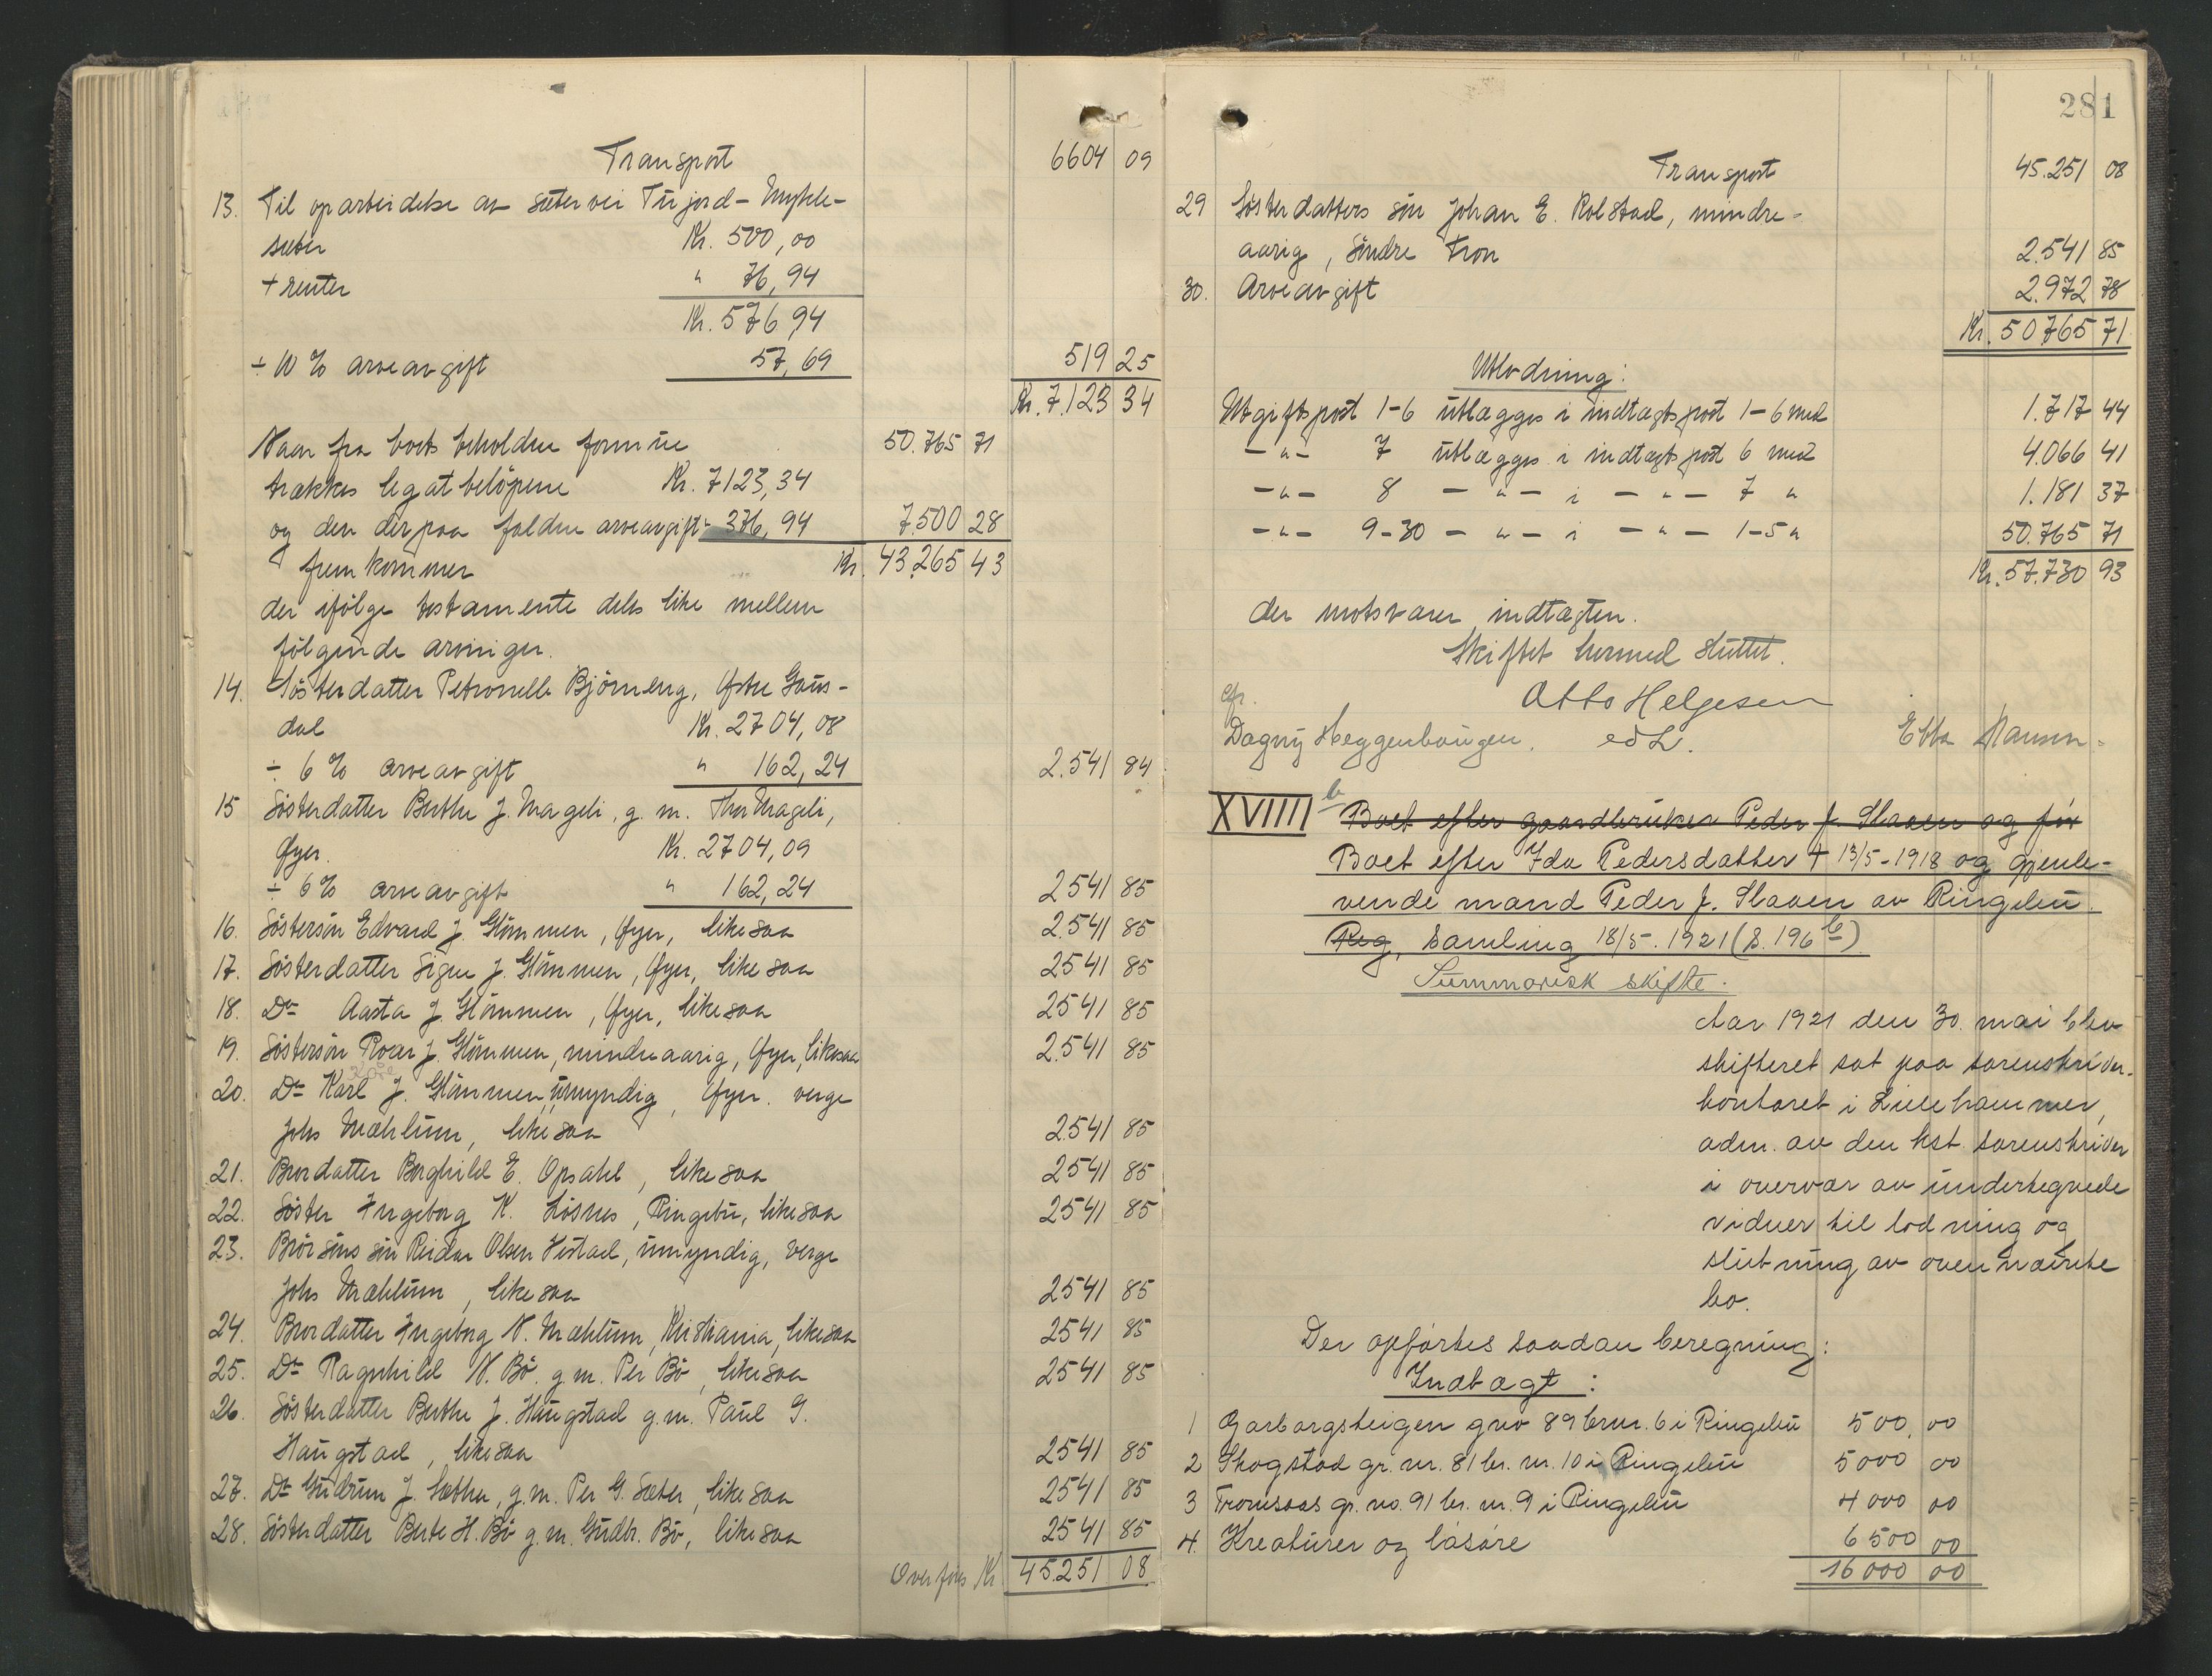 Transport 6604 09
13. Til oparbeidelse av sætervei Turjord - Mykle-
sæter Kr. 500,00
+ renter " 76,94
Kr. 576,94
÷ 10 % arveavgift 57,69 519 25
Kr. 7.123 34
Naar fra boets beholdne formue 50.765 71
trækkes legatbelöpene Kr. 7123,34
og den derpaa faldne arveavgift " 376,94 7.500 28
fremkommer Kr. 43.265 43
der ifölge testamente deles like mellem
fölgende arvinger.
14. Sösterdatter Petronelle Björneng, Östre Gaus-
dal Kr. 2704,08
÷ 6 % arveavgift " 162,24 2.541 84
15 Sösterdatter Berthe J. Mageli, g. m. Thor Mageli,
Öyer. Kr. 2704,09
÷ 6 % arveavgift " 162,24 2541 85
16. Söstersön Edvard J. Glömmen, Öyer, likesaa 2.541 85
17. Sösterdatter Signe J. Glömmen, Öyer, likesaa 2541 85
18. Do Aasta J. Glömmen, Öyer, likesaa 2541 85
19. Söstersön Roar J. Glömmen, mindreaarig, Öyer, likesaa 2.541 85
Kåre
20. Do Karl J. Glömmen, umyndig, Öyer. verge
Johs Mæhlum, likesaa 2541 85
21. Brordatter Borghild E. Opsahl, likesaa 2541 85
22. Söster Ingeborg K. Lösnes, Ringebu, likesaa 2541 85
23. Brorsöns sön Reidar Olsen Histad, umyndig, verge
Johs Mæhlum, likesaa 2541 85
24. Brordatter Ingeborg N. Mæhlum, Kristiania, likesaa 2541 85
25. Do Ragnhild N. Bö. g. m. Per Bö, likesaa 2541 85
26. Sösterdatter Berthe J. Haugstad g. m. Paul G.
Haugstad, likesaa 2541 85
27. Do Gudrun J. Sæther, g.m. Per G. Sæter, likesaa 2541 85
28. Sösterdatter Berte H. Bö g. m. Gudbr. Bö, likesaa 2541 85
Overföres Kr. 45.251 08
281
Transport 45.251 08
29 Sösterdatters sön Johan E. Rolstad, mindre-
aarig, Söndre Fron 2.541 85
30. Arveavgift 2.972 78
Kr. 50765 71
Utlodning:
Utgiftspost 1-6 utlægges i indtægtspost 1-6 med 1.717 44
-"- 7 utlægges i indtægtspost 6 med 4.066 41
-"- 8 -"- i -"- 7 " 1.181 37
-"- 9-30 -"- i -"- 1-5 " 50.765 71
Kr. 57.730 93
der motsvarer indtægten.
Skiftet hermed sluttet.
Otto Helgesen
cfr.
Dagny Heggenhougen. edL. Ebba Hansen.
XVIIII b Boet efter gaardbruker Peder J. Slaaen og før
Boet efter Ida Pedersdatter + 13/5-1918 og gjenle-
vende mand Peder J. Slaaen av Ringebu.
Reg, Samling 18/5. 1921 (S. 196 b)
Summarisk skifte.
Aar 1921 den 30. mai blev
skifteret sat paa sorenskriver-
kontoret i Lillehammer,
adm. av den kst. sorenskriver
i overvær av undertegnede
vidner til lodning og
slutning av ovennævnte
bo.
Der opförtes saadan beregning:
Indtægt:
1 Garborgsteigen gno 89 brnr. 6 i Ringebu 500,00
2 Skogstad gr. nr. 81 br. nr. 10 i Ringebu 5000 00
3 Tromsaas gr. no. 91 br. nr. 9 i Ringebu 4000 00
4. Kreaturer og lösöre 6500 00
16000 00